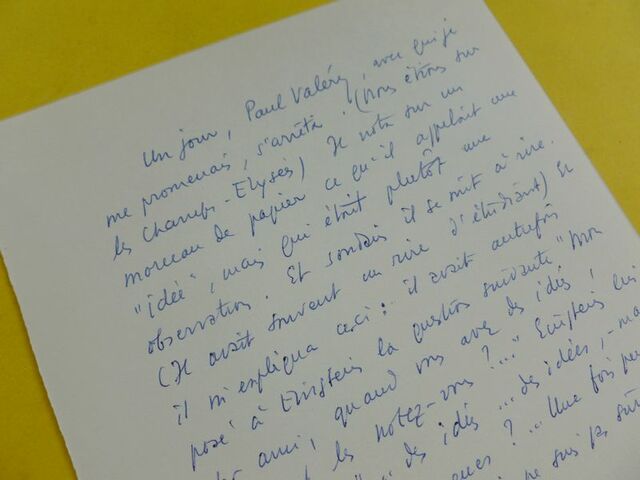 Un jour, Paul Valéry, avec qui je
me promenais, s'arrêta. (Nous étions sur
les Champs-Elysés) Il nota sur un
morceau de papier ce qu'il appelait une
"idée", mais qui était plutôt une
observation. Et soudain il se mit à rire.
(Il avait souvent un rire d'étudiant) Et
il m'expliqua ceci: il avait autrefois
posé à Einstein la question suivante "Mon
ami, quand vous avez des idées,
les notez-vous?..." Einstein lui
des idées ... des idées,
? ... Une fois
ne suis pas sûr